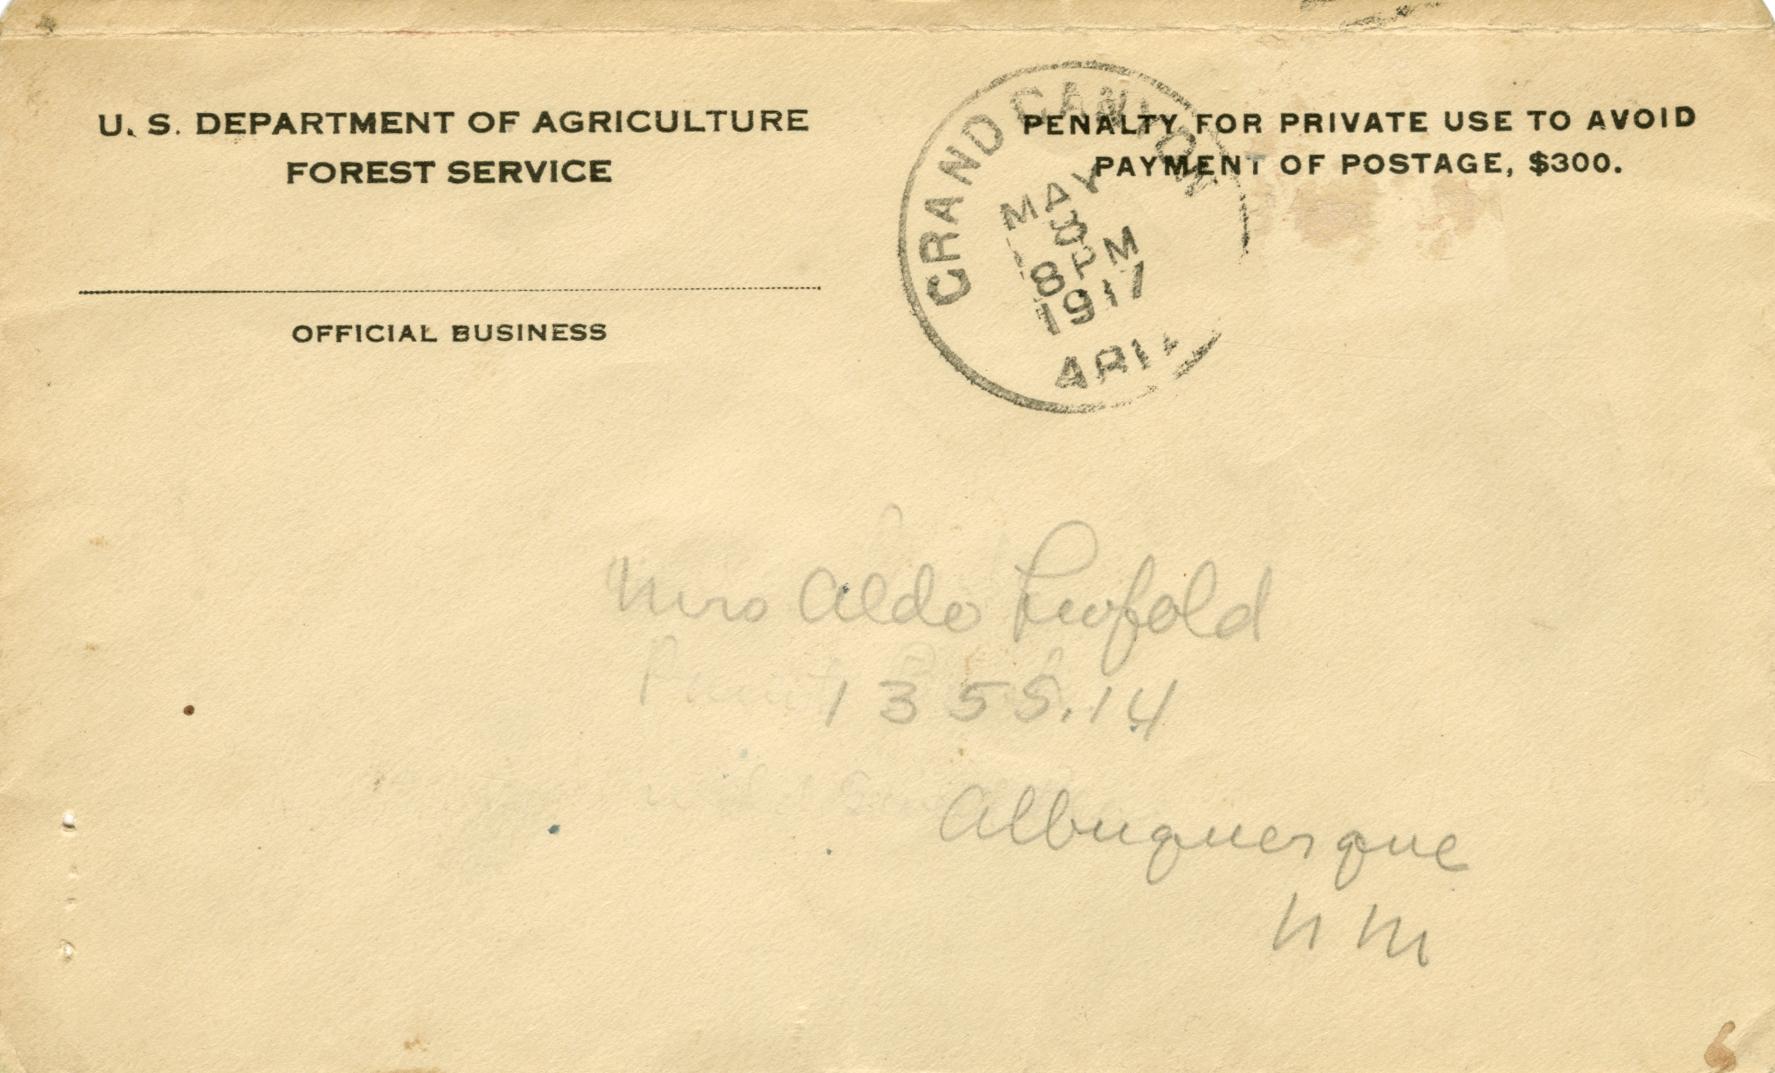 U. S. DEPARTMENT OF AGRICULTURE
FOREST SERVICE
OFFICIAL BUSINESS
PENALTY FOR PRIVATE USE TO AVOID
PAYMENT OF POSTAGE, $300.
GRAND CANYON
MAY
3
8 PM
1917
ARIZ
Mrs Aldo Leopold
1355.14
Albuquerque
N M